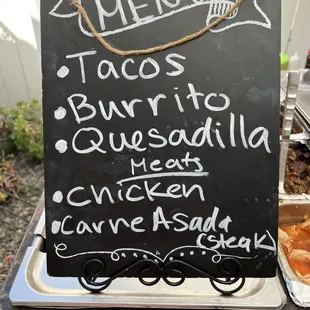 MENU
• Tacos
• Burrito
• Quesadilla
Meats
• Chicken
• Carne Asada
(steak)